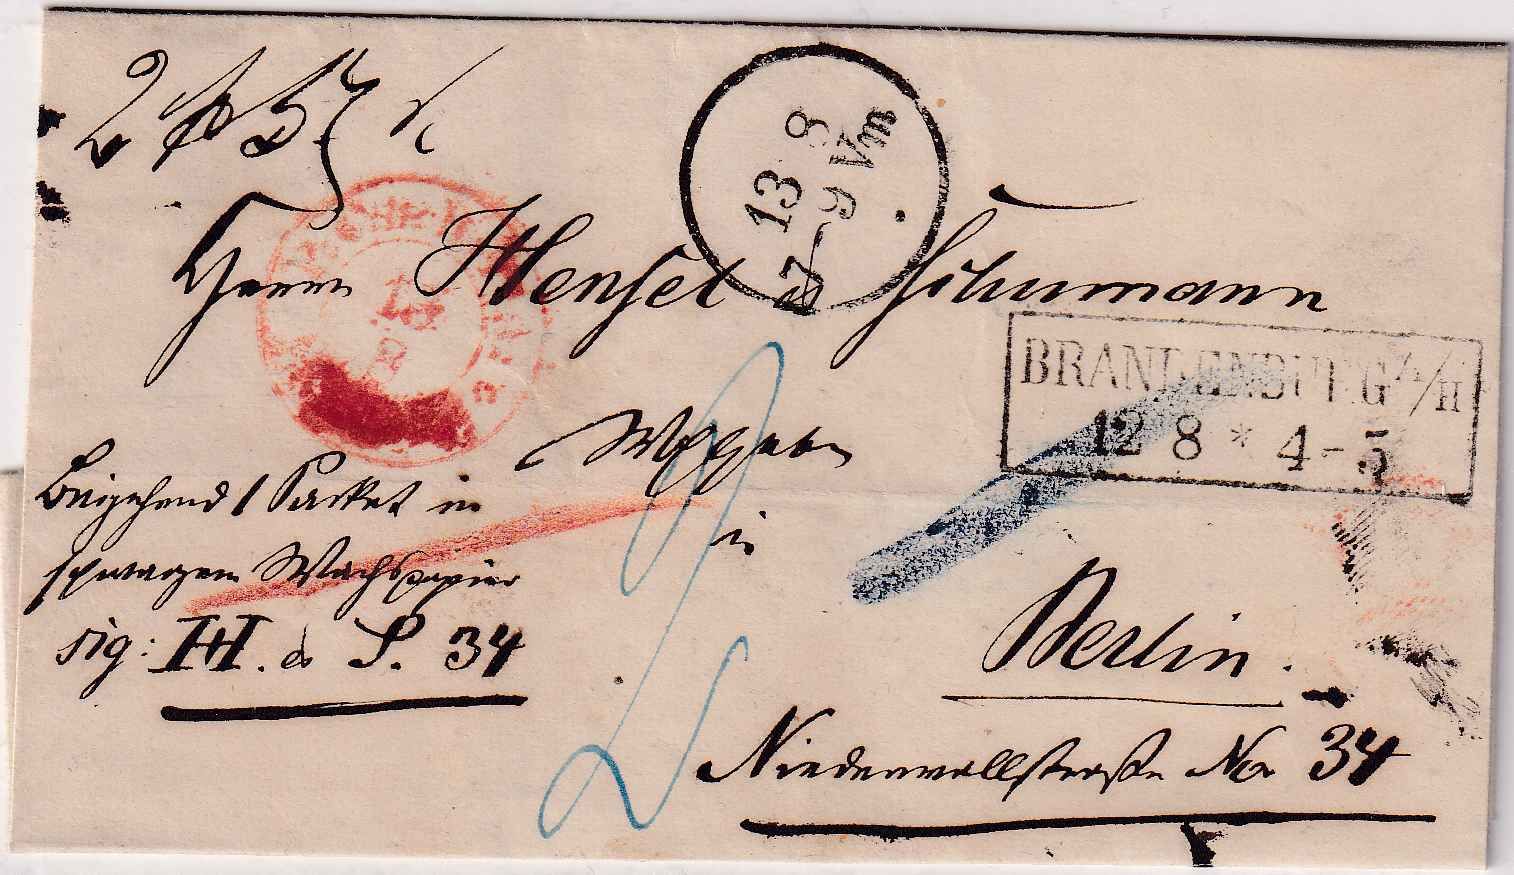 2 ℔ 5
13 8
7-9 Vm
Herrn Hensel & Schumann
BRANDENBURG A/H
12 8 * 4-5
Beigehend 1 Packet in
schwarzem Wachspapier
sig: H. & S. 34
2
in
Berlin.
Niederwallstraße No 34